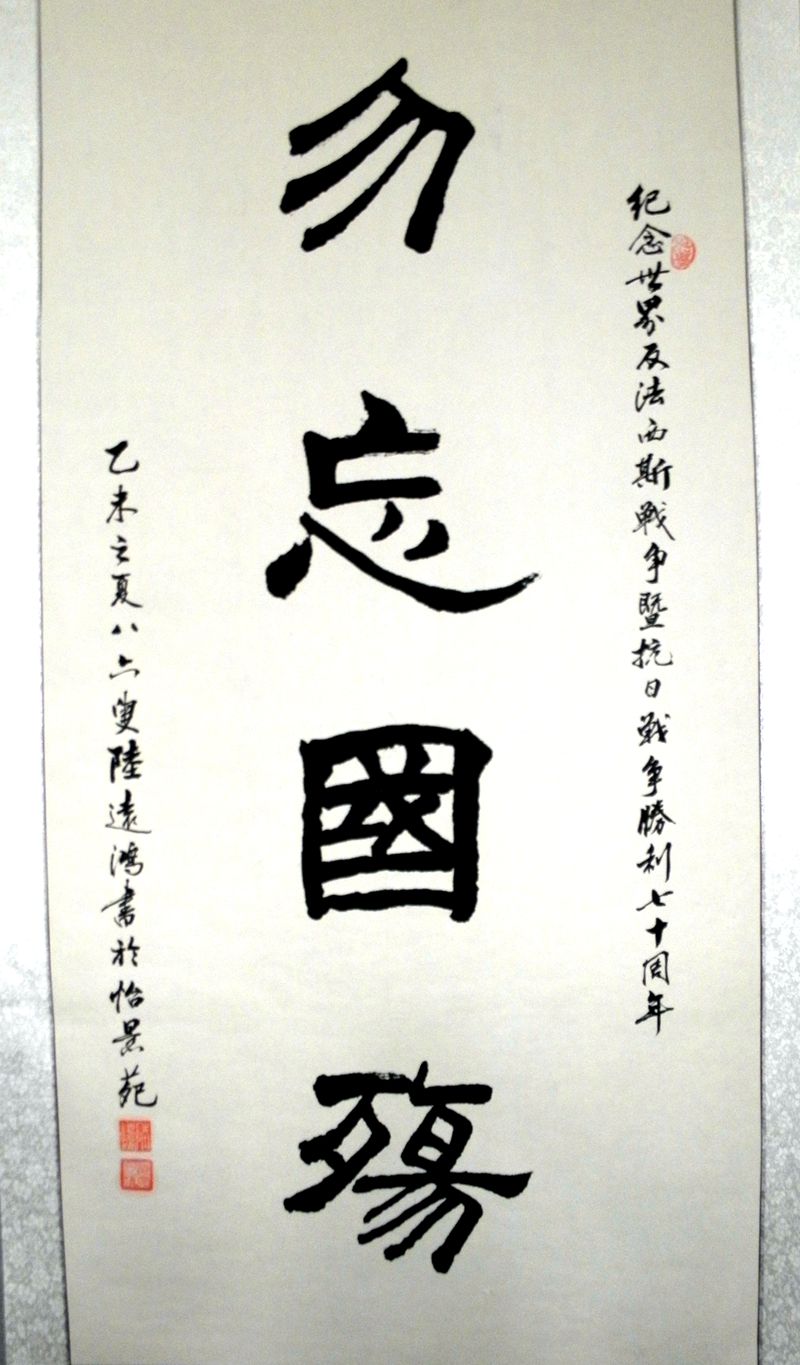 纪念世界反法西斯戰争暨抗日戰争勝利七十周年
勿忘國殤
乙未之夏八六叟陸遠鴻書於怡景苑